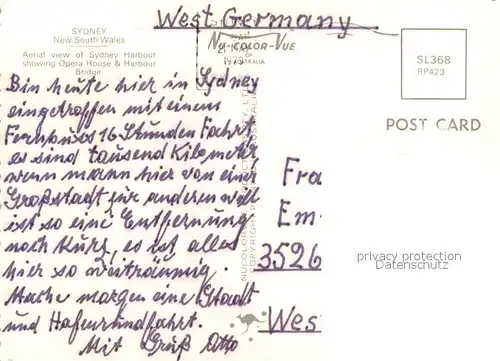 West Germany
SYDNEY
New South Wales
Aerial view of Sydney Harbour
showing Opera House & Harbour
Bridge
Nu-COLOR-VUE
SL368
RP423
POST CARD
Bin heute hier in Sydney
eingetroffen mit einem
Fernbuss 16 Stunden Fahrt
es sind tausend Kilometer
wenn mann hier von einer
Großstadt zur anderen will
ist so eine Entfernung
noch kurz, es ist alles
hier so weiträumig.
Mache morgen eine Stadt
und Hafenrundfahrt.
Mit Gruß Otto
Fra
Em
3526
Wes
privacy protection
Datenschutz